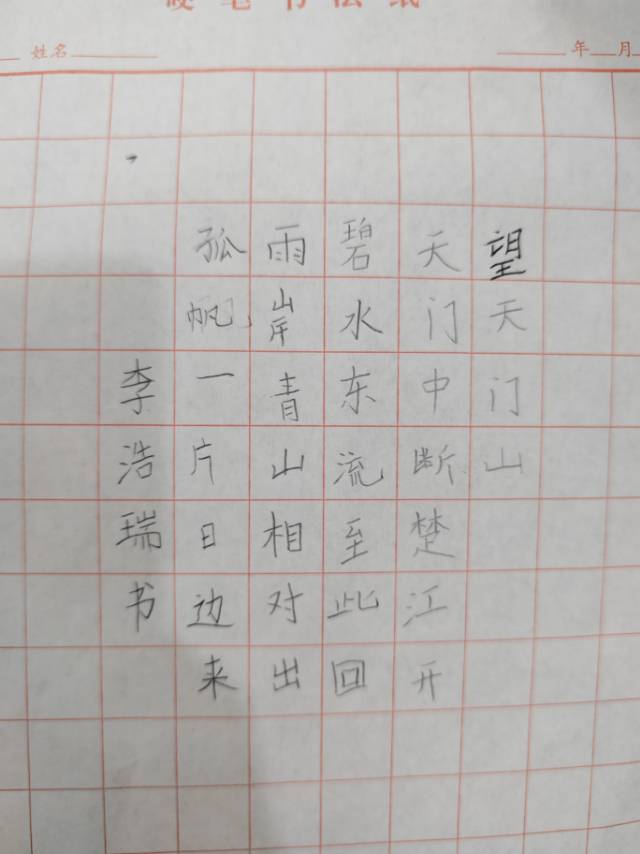 硬笔书法纸
姓名 年 月
望天门山
天门中断楚江开
碧水东流至此回
雨岸青山相对出
孤帆一片日边来
李浩瑞书